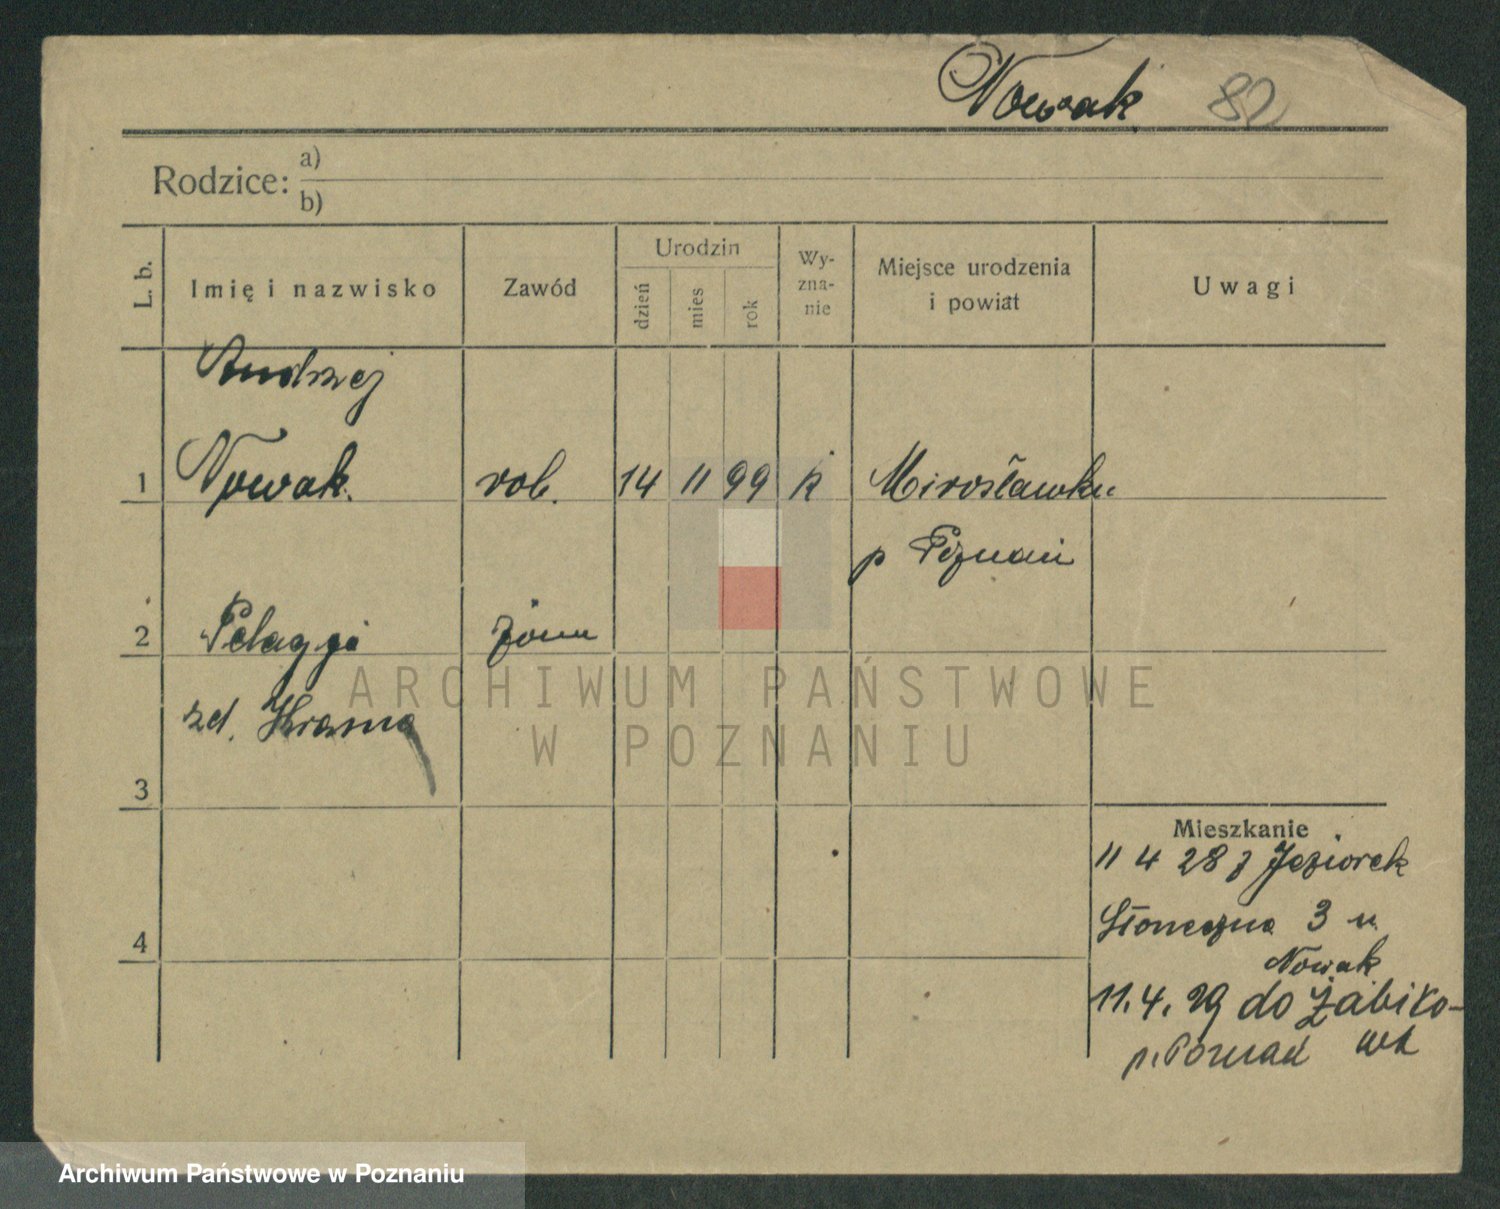 Nowak 82
Rodzice: a)
b)
L. b.
Imię i nazwisko
Zawód
Urodzin
dzień
mies
rok
Wy-
zna-
nie
Miejsce urodzenia
i powiat
Uwagi
Andrzej
1 Nowak. rob. 14 11 99 k Mirosławku
p Poznań
2 Pelagja żona
zd.
3
4
Mieszkanie
11 4 28 z Jeziorek
Słoneczna 3 u
Nowak
11.4.29 do Żabiko-
p. Poznań wa
ARCHIWUM PAŃSTWOWE
W POZNANIU
Archiwum Państwowe w Poznaniu